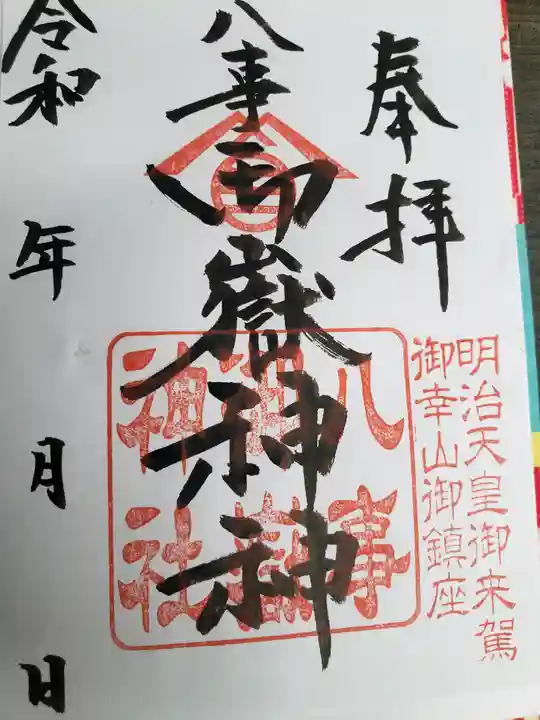 奉拝
明治天皇御来駕
御幸山御鎮座
八事御嶽神神
八事
御嶽
神社
令和 年 月 日